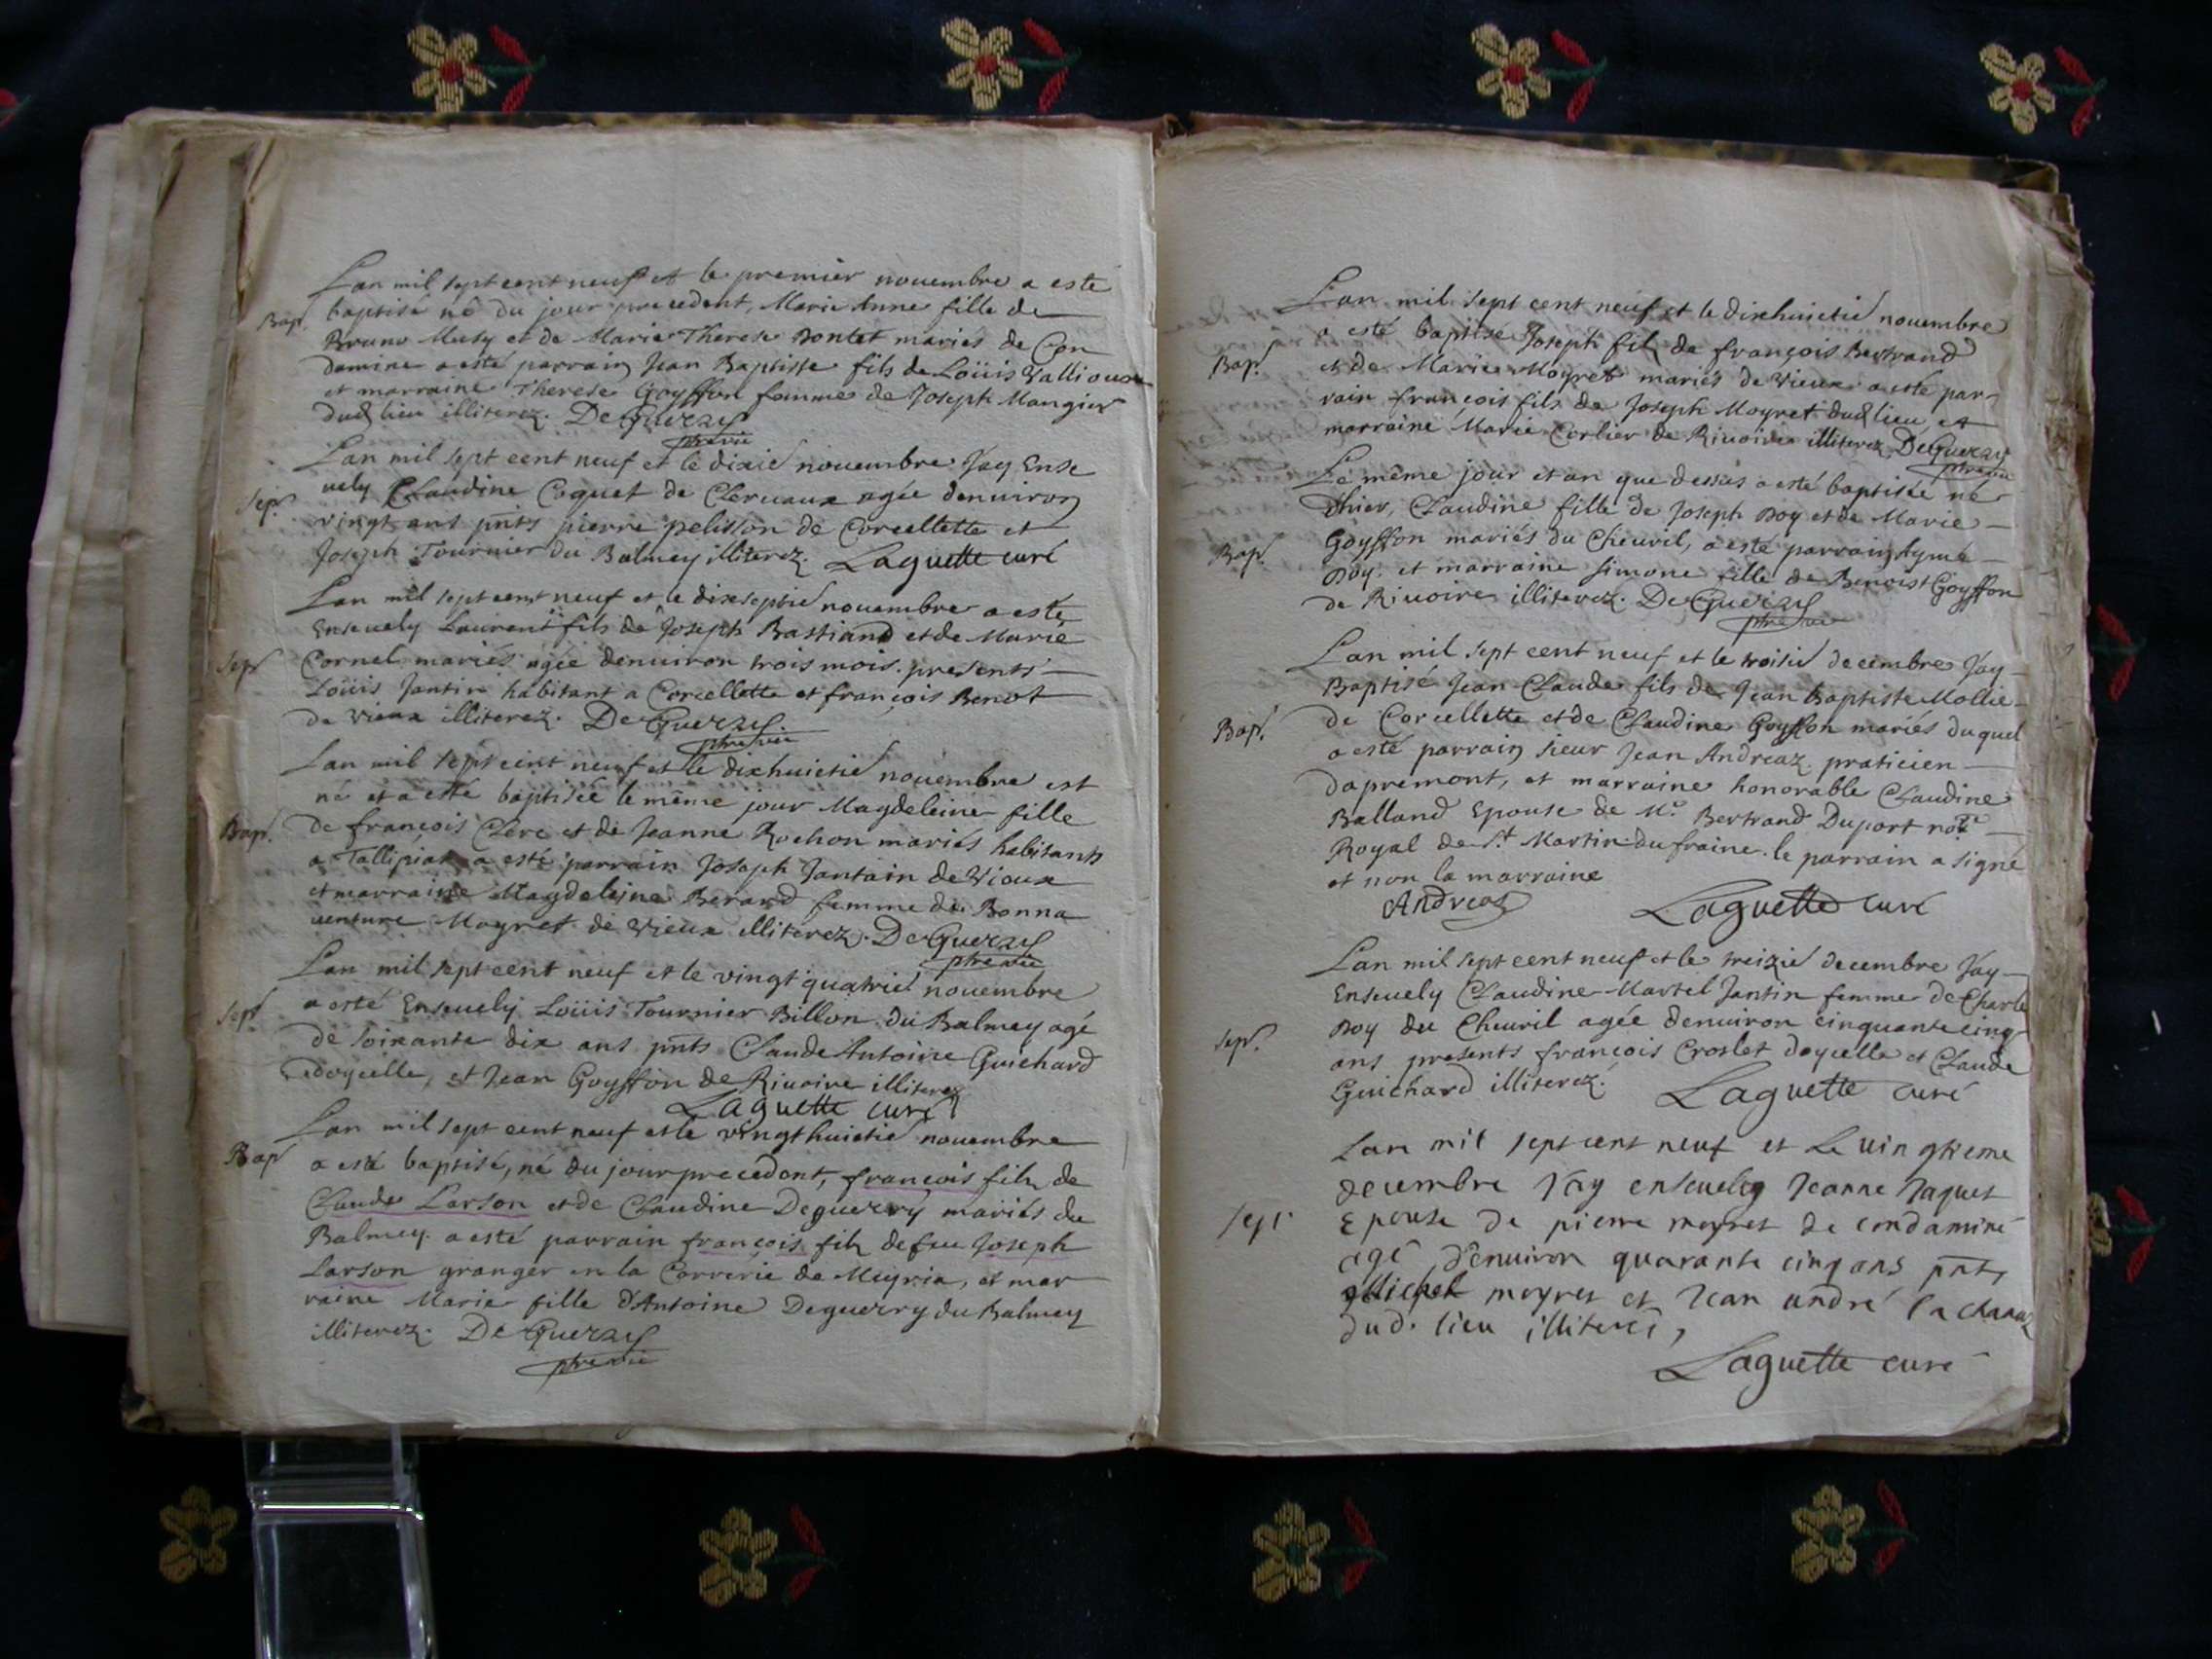 Lan mil sept cent neuf et le premier nouembre a esté
Bap. baptisé né du jour precedent, Marie Anne fille de
Bruno Musy et de Marie Therese Bontet mariés de Con
damine a esté parrain Jean Baptiste fils de Loüis Vallioux
et marraine Therese Goyffon femme de Joseph Mangier
dud lieu illiterez. De Guerry
ptre vic
Lan mil sept cent neuf et le dixié nouembre Jay Ense
Sep. uely Claudine Coquet de Cleruaux agée denuiron
vingt ans pnts pierre pelisson de Corcellette et
Joseph Tournier du Balmey illiterez. Laguette curé
Lan mil sept cent neuf et le dixseptié nouembre a esté
Enseuely Laurent fils de Joseph Bastiand et de Marie
Sep. Cornel mariés agée denuiron trois mois. presents
Loüis Jantin habitant a Corcellette et françois Benot
de vieux illiterez. De Guerry
ptre vic
Lan mil sept cent neuf et le dixhuictié nouembre est
né et a esté baptisée le même jour Magdeleine fille
Bap. de françois Clerc et de Jeanne Rochon mariés habitants
a Tallipiat a esté parrain Joseph Jantain de Vioux
et marraine Magdeleine Berard femme de Bonna
uenture Moyret de vieux illiterez. De Guerry
ptre vic
Lan mil sept cent neuf et le vingt quatrié nouembre
Sep. a esté Enseuely Loüis Tournier Billon du Balmey agé
de soixante dix ans pnts Claude Antoine Guichard
doycelle, et Jean Goyffon de Riuoire illiterez
Laguette curé
Lan mil sept cent neuf et le vingthuictié nouembre
Bap a esté baptisé, né du jour precedent, françois fils de
Claude Larson et de Claudine Deguerry mariés du
Balmey. a esté parrain françois fils de feu Joseph
Larson granger en la Correrie de Meyria, et mar
raine Marie fille d'Antoine Deguerry du Balmey
illiterez. De Guerry
ptre vic
Lan mil sept cent neuf et le dixhuictié nouembre
a esté baptisé Joseph fils de françois Bertrand
Bap. et de Marie Moyret mariés de vieux a esté par
rain françois fils de Joseph Moyret dud lieu et
marraine Marie Corlier de Riuoire illiterez De Guerry
ptre vic
Le même jour et an que dessus a esté baptisée né
dhier, Claudine fille de Joseph Boy et de Marie
Bap. Goyffon mariés du Cheuril, a esté parrain Aymé
Boy. et marraine simone fille de Benoist Goyffon
de Riuoire illiterez. De Guerry
ptre vic
Lan mil sept cent neuf et le troisié decembre Jay
Baptisé Jean Claude fils de Jean Baptiste Mollie
Bap. de Corcellette et de Claudine Goyffon mariés duquel
a esté parrain sieur Jean Andreaz praticien
dapremont, et marraine honorable Claudine
Balland Epouse de Mr. Bertrand Duport nore
Royal de St Martin du fraine. le parrain a signé
et non la marraine
Andreaz Laguette curé
Lan mil sept cent neuf et le treizié decembre Jay
Enseuely Claudine Martel Jantin femme de Charle
Sep. Boy du Cheuril agée denuiron cinquante cinq
ans presents françois Croslet doycelle et Claude
Guichard illiterez. Laguette curé
Lan mil sept cent neuf et Le uingtieme
decembre Jay enseuely Jeanne Jaquet
Sep. Epouse de pierre moyret de condamine
agé denuiron quarante cinq ans pnts
Michel moyret et Jean andré
dud. lieu illiterés,
Laguette curé